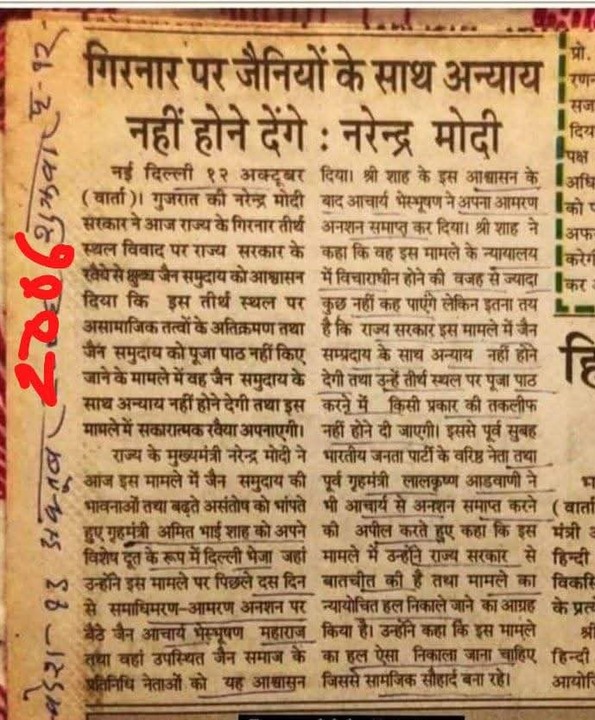 गिरनार पर जैनियों के साथ अन्याय
नहीं होने देंगे : नरेन्द्र मोदी
नई दिल्ली १२ अक्टूबर
(वार्ता)। गुजरात की नरेन्द्र मोदी
सरकार ने आज राज्य के गिरनार तीर्थ
स्थल विवाद पर राज्य सरकार के
रवैये से क्षुब्ध जैन समुदाय को आश्वासन
दिया कि इस तीर्थ स्थल पर
असामाजिक तत्वों के अतिक्रमण तथा
जैन समुदाय को पूजा पाठ नहीं किए
जाने के मामले में वह जैन समुदाय के
साथ अन्याय नहीं होने देगी तथा इस
मामले में सकारात्मक रवैया अपनाएगी।
राज्य के मुख्यमंत्री नरेन्द्र मोदी ने
आज इस मामले में जैन समुदाय की
भावनाओं तथा बढ़ते असंतोष को भांपते
हुए गृहमंत्री अमित भाई शाह को अपने
विशेष दूत के रूप में दिल्ली भेजा जहां
उन्होंने इस मामले पर पिछले दस दिन
से समाधिमरण-आमरण अनशन पर
बैठे जैन आचार्य भेस्भूषण महाराज
तथा वहां उपस्थित जैन समाज के
प्रतिनिधि नेताओं को यह आश्वासन
दिया। श्री शाह के इस आश्वासन के
बाद आचार्य भेस्भूषण ने अपना आमरण
अनशन समाप्त कर दिया। श्री शाह ने
कहा कि वह इस मामले के न्यायालय
में विचाराधीन होने की वजह से ज्यादा
कुछ नहीं कह पाएंगे लेकिन इतना तय
है कि राज्य सरकार इस मामले में जैन
सम्प्रदाय के साथ अन्याय नहीं होने
देगी तथा उन्हें तीर्थ स्थल पर पूजा पाठ
करने में किसी प्रकार की तकलीफ
नहीं होने दी जाएगी। इससे पूर्व सुबह
भारतीय जनता पार्टी के वरिष्ठ नेता तथा
पूर्व गृहमंत्री लालकृष्ण आडवाणी ने
भी आचार्य से अनशन समाप्त करने
की अपील करते हुए कहा कि इस
मामले में उन्होंने राज्य सरकार से
बातचीत की है तथा मामले का
न्यायोचित हल निकाले जाने का आग्रह
किया है। उन्होंने कहा कि इस मामले
का हल ऐसा निकाला जाना चाहिए
जिससे सामंजिक सौहार्द बना रहे।
प्रो.
सज
दिय
पक्ष
अधि
को
अफ
करेगी
कर
हि
(वार्ता
मंत्री
हिन्दी
विकसि
के प्रत
श्री
हिन्दी
आयोजि
१३ अक्तूबर 2006 शुक्रवार पृ-१२